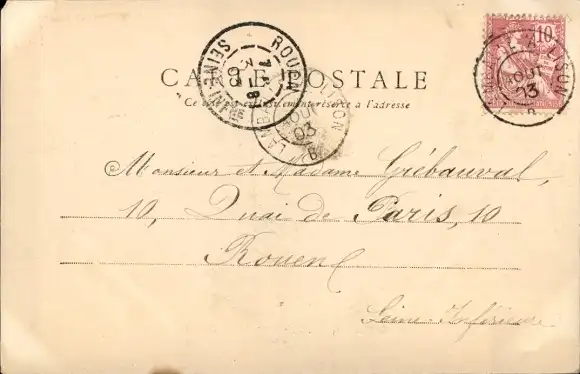 CARTE POSTALE
Ce côté est exclusivement réservé à l'adresse
10
ROUEN
SEINE
03
AOUT
03
AOUT
03
Monsieur et Madame Grébauval,
10, Quai de Paris, 10
Rouen
Seine-Inférieure